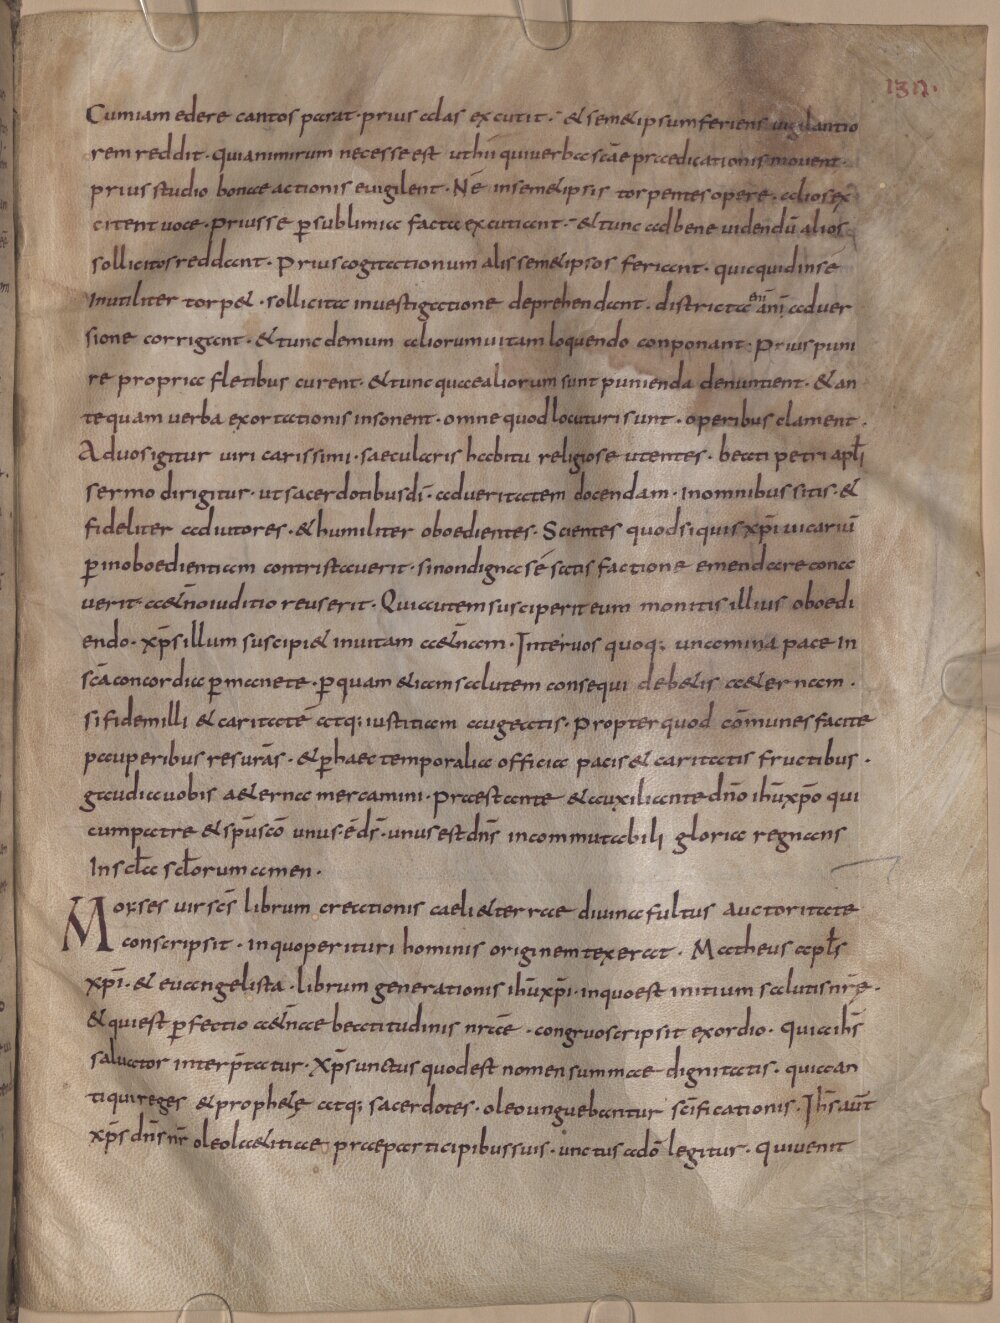 132.
Cum iam edere cantos parat · prius alas excutit · & semetipsum feriens vigilantio
rem reddit · quia nimirum necesse est ut hii qui verba scāe praedicationis movent ·
prius studio bonae actionis evigilent · Nē in semetipsis torpentes opere · alios ex
citent voce · prius se ꝑ sublimia facta excutiant · & tunc ad bene videndū alios
sollicitos reddant · Prius cogitationum alis semetipsos feriant · quicquid in se
inutiliter torp& · sollicita investigatione deprehendant · districta enī anī adver
sione corrigant · & tunc demum aliorum vitam loquendo conponant · Prius puni
re propria fletibus curent · & tunc quae aliorum sunt punienda denuntient · & an
tequam verba exortationis insonent · omne quod locuturi sunt · operibus clament ·
Ad vos igitur viri carissimi · saecularis habitu religiose utentes · beati petri apłi
sermo dirigitur · ut sacerdotibus dī · ad veritatem docendam · in omnibus sitis · &
fideliter adiutores · & humiliter oboedientes · Scientes quod si quis xp̄i vicariū
ꝑ inoboedientiam contristaverit · si non digna sé satisfactione emendare cona
verit · a&̄no iuditio reus erit · Qui autem susciperit eum monitis illius oboedi
endo · xp̄s illum suscipi& in vitam a&̄nam · Inter vos quoq; unanima pace in
scā concordia ꝑmanete · ꝑ quam & iam salutem consequi deb&is a&ernam ·
si fidem illi & caritatē atq; iustitiam augeatis · propter quod cōmunes facite
pauperibus res urās · & ꝑ haec temporalia officia pacis & caritatis fructibus ·
gaudia vobis a&erna mercamini · Praestante & auxiliante dn̄o ihū xp̄o qui
cum patre & sp̄u scō unus · ē dś · unus est dn̄s incommutabili gloria regnans
In scła scłorum amen ·
Moyses vir scs̄ librum creationis caeli & terrae divina fultus auctoritate
conscripsit · in quo perituri hominis originem texerat · Matheus apłs
xp̄i · & evangelista · librum generationis ihū xp̄i · in quo est initium salutis nr̄ę ·
& qui est ꝑfectio a&̄nae beatitudinis nr̄ae · congruo scripsit exordio · quia ihs̄
salvator interp̄tatur · Xp̄s unctus quod est nomen summae dignitatis · quia an
tiqui reges & proph&ę atq; sacerdotes · oleo unguebantur scīficationis · Ihs̄ aūt
xp̄s dn̄s nr̄ oleo la&itiae prae participibus suis · unctus a dō legitur · qui venit